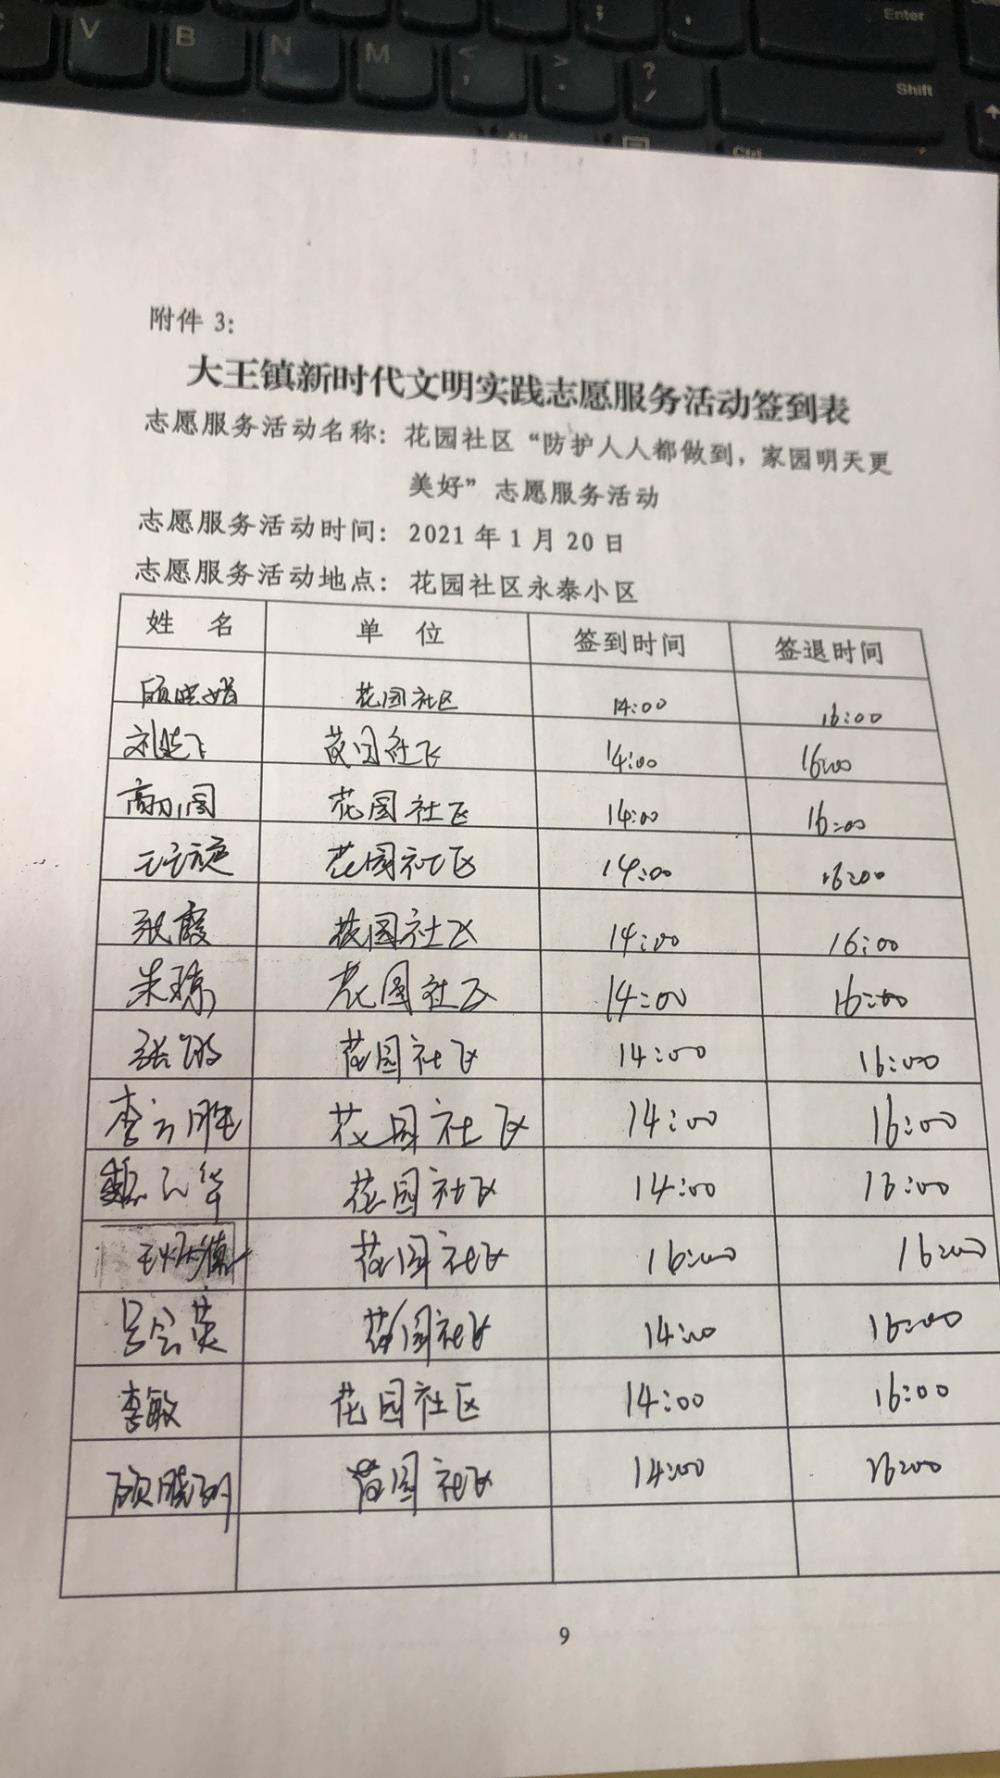 附件 3：
大王镇新时代文明实践志愿服务活动签到表
志愿服务活动名称：花园社区“防护人人都做到，家园明天更
美好”志愿服务活动
志愿服务活动时间：2021 年 1 月 20 日
志愿服务活动地点：花园社区永泰小区
姓 名 单 位 签到时间 签退时间
花园社区 14:00 16:00
花园社区 14:00 16:00
花园社区 14:00 16:00
花园社区 14:00 16:00
张霞 花园社区 14:00 16:00
朱琼 花园社区 14:00 16:00
花园社区 14:00 16:00
李云胜 花园社区 14:00 16:00
花园社区 14:00 16:00
花园社区 16:00 16:00
吕会英 花园社区 14:00 16:00
李敏 花园社区 14:00 16:00
花园社区 14:00 16:00
9
V B N M < , > . ? / ; Enter Shift